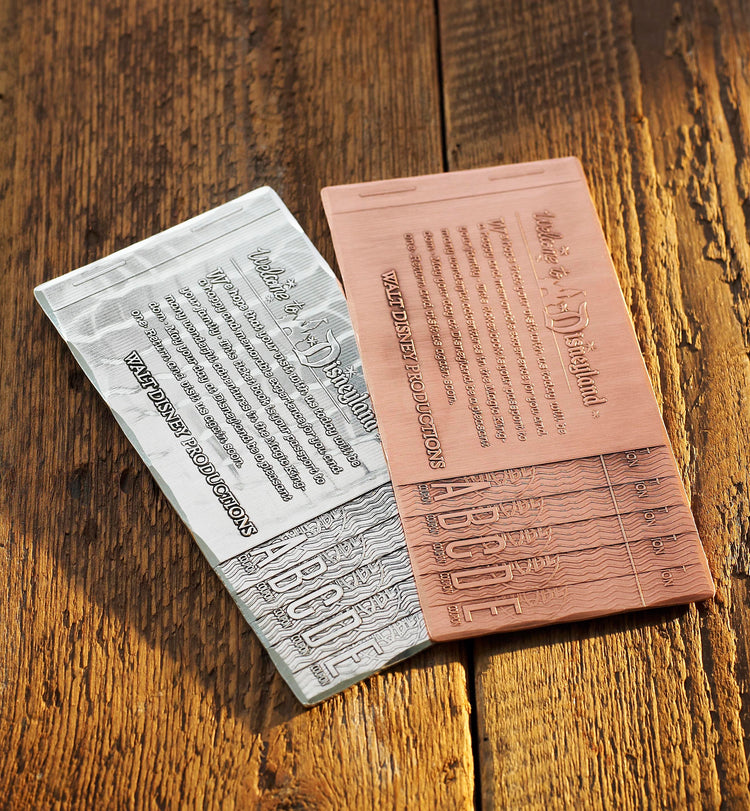 Welcome to
Disneyland
We hope that your visit with us today will be
a happy and memorable experience for you and
your family. This ticket book is your passport to
many wonderful adventures in the Magic King-
dom. May your day at Disneyland be a pleasant
one. Return and visit us again soon.
WALT DISNEY PRODUCTIONS
A COUPON
B COUPON
C COUPON
D COUPON
E COUPON
Welcome to
Disneyland
We hope that your visit with us today will be
a happy and memorable experience for you and
your family. This ticket book is your passport to
many wonderful adventures in the Magic King-
dom. May your day at Disneyland be a pleasant
one. Return and visit us again soon.
WALT DISNEY PRODUCTIONS
A COUPON
B COUPON
C COUPON
D COUPON
E COUPON